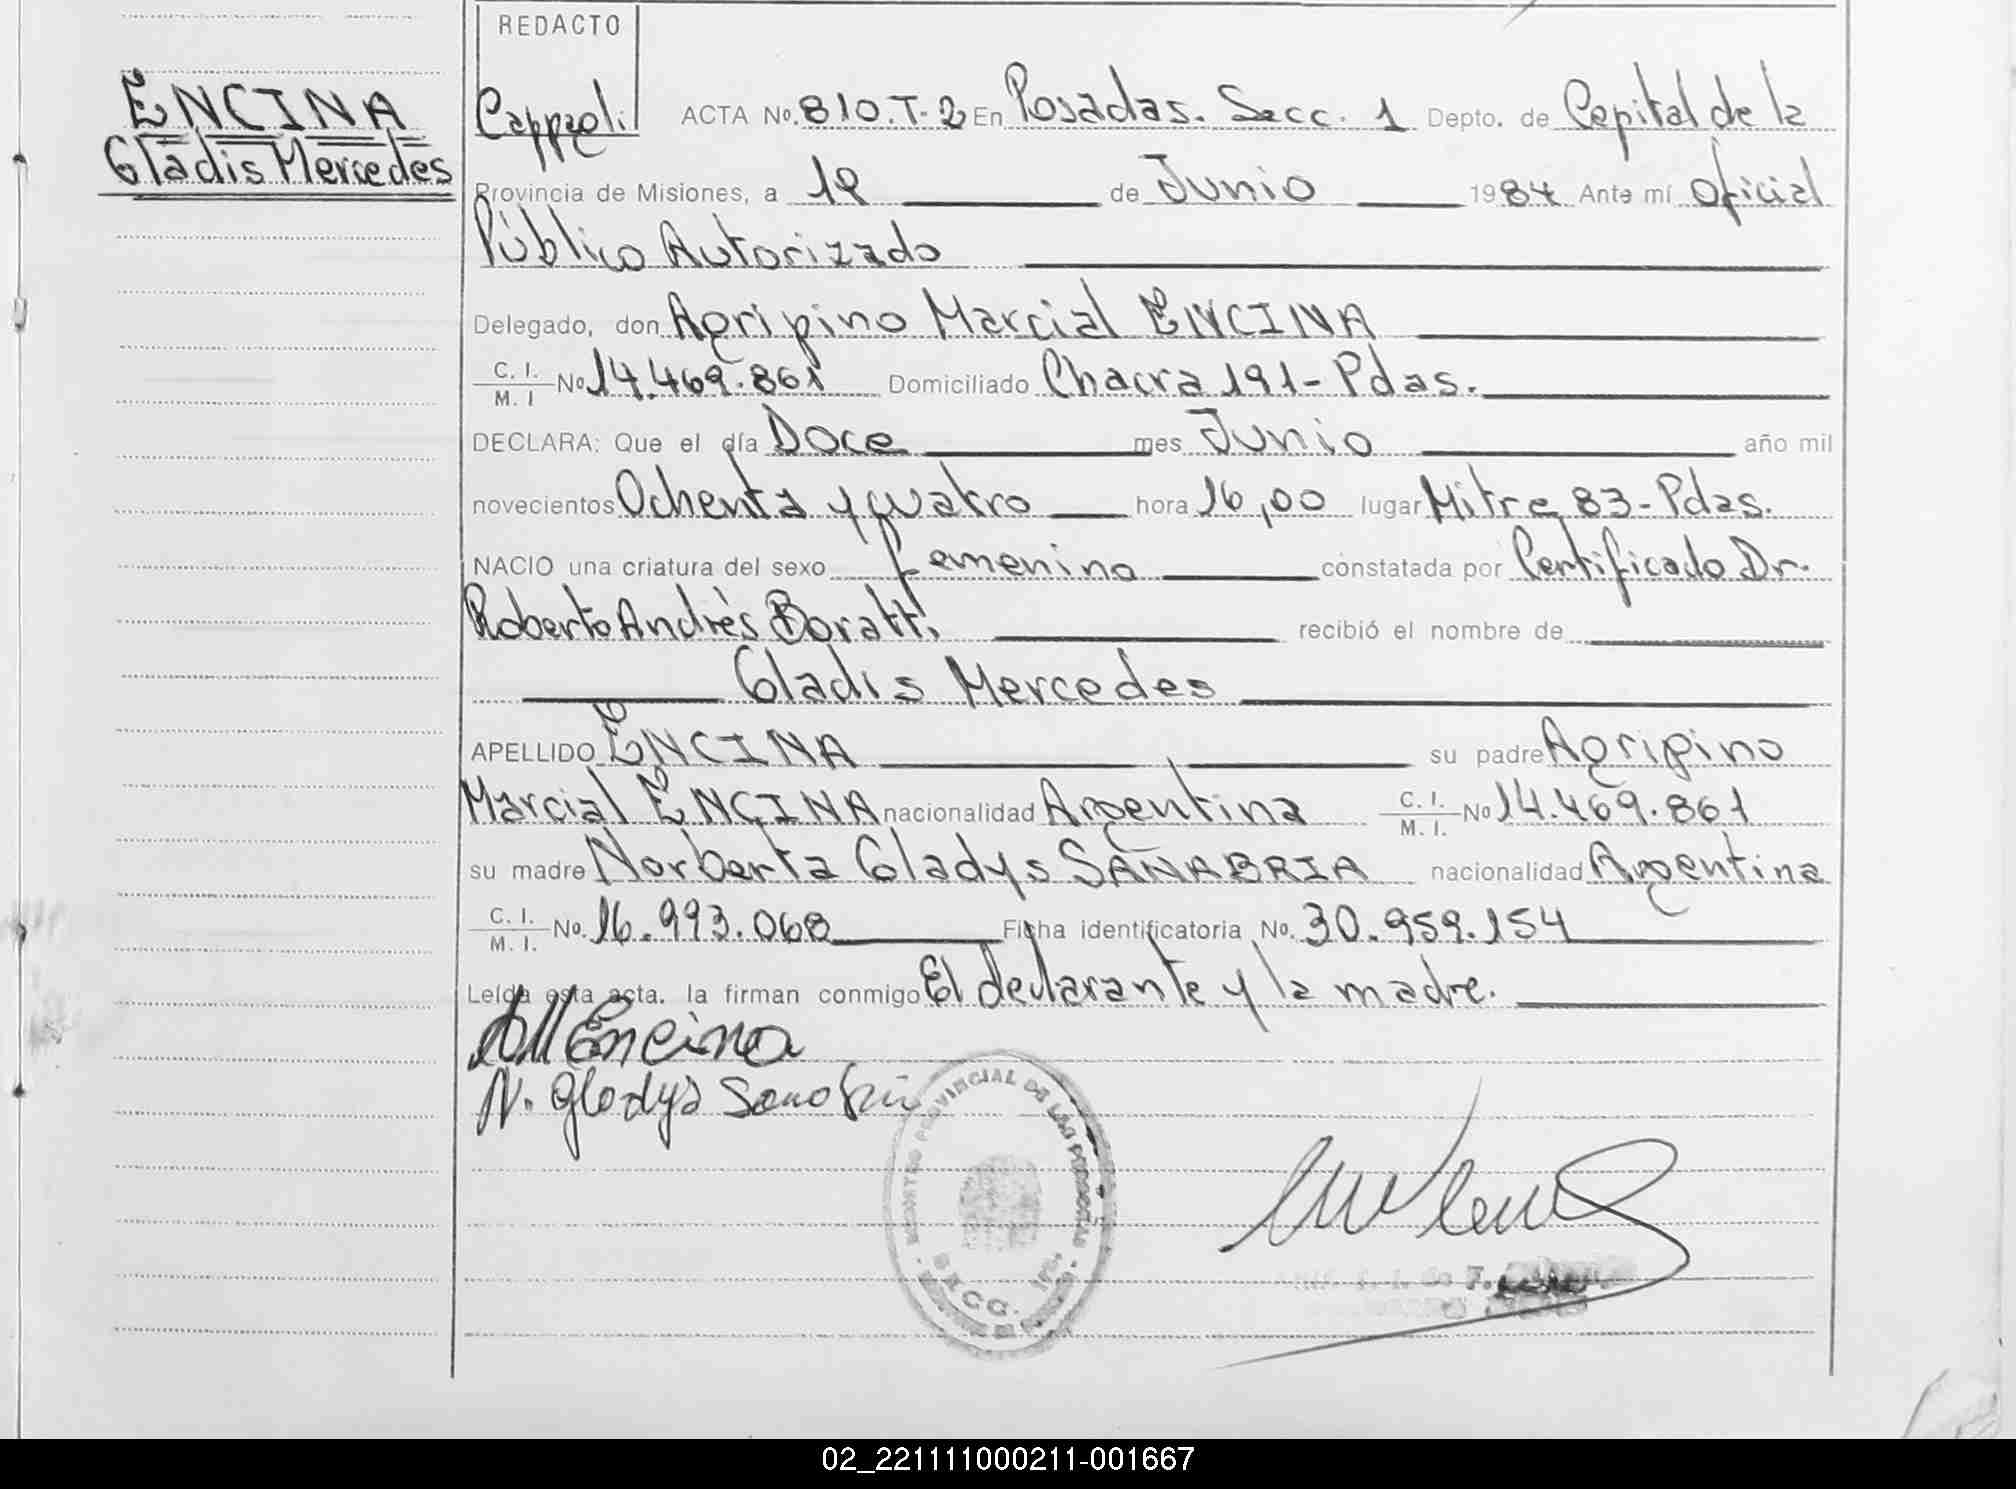 REDACTO
ENCINA
Gladis Mercedes
Cappeoli ACTA No. 810.T-2 En Posadas. Secc. 1 Depto. de Capital de la
Provincia de Misiones, a 19 de Junio 1984 Ante mí Oficial
Público Autorizado
Delegado, don Agripino Marcial ENCINA
C. I. M. I No 14.469.861 Domiciliado Chacra 191-Pdas.
DECLARA: Que el día Doce mes Junio año mil
novecientos Ochenta y cuatro hora 16,00 lugar Mitre 83-Pdas.
NACIO una criatura del sexo femenino constatada por Certificado Dr.
Roberto Andrés Boratti recibió el nombre de
Gladis Mercedes
APELLIDO ENCINA su padre Agripino
Marcial ENCINA nacionalidad Argentina C. I. M. I. No 14.469.861
su madre Norberta Gladys SANABRIA nacionalidad Argentina
C. I. M. I. No. 16.993.068 Ficha identificatoria No. 30.959.154
Leída esta acta. la firman conmigo El declarante y la madre.
AMEncina
N. Gladys Sanabria
REGISTRO PROVINCIAL DE LAS PERSONAS
SECC. 1ra.
02_221111000211-001667